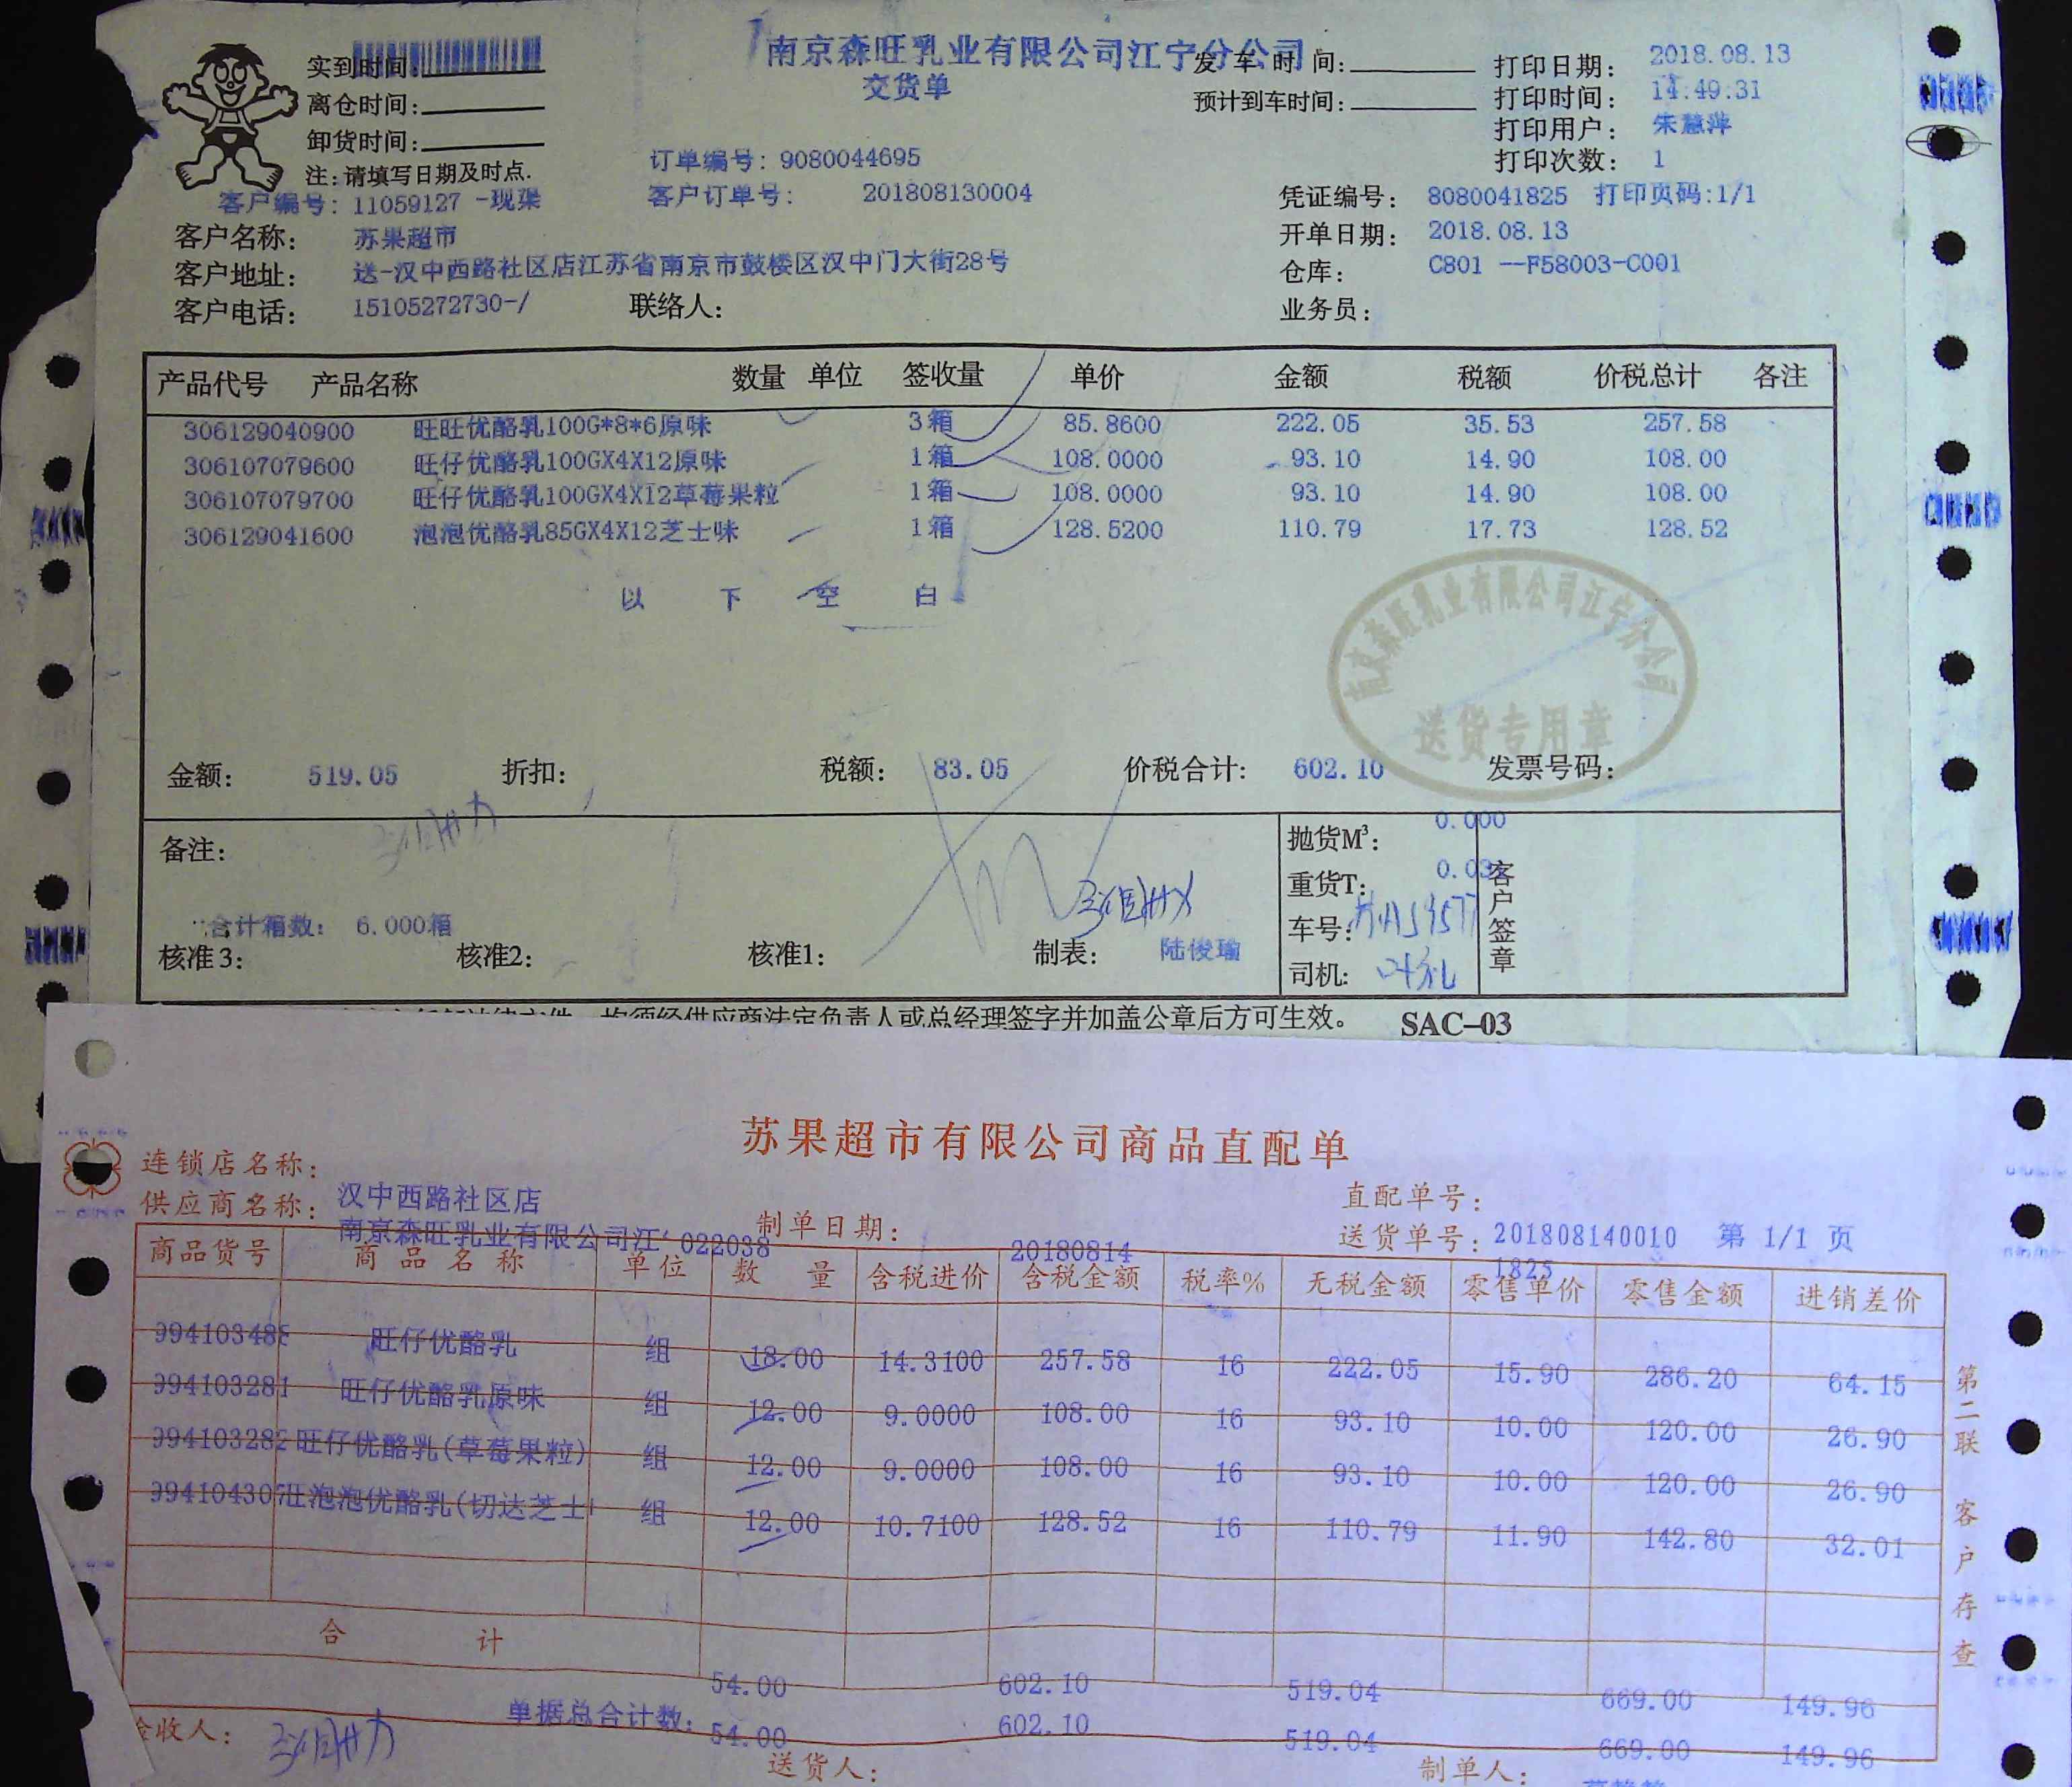 南京森旺乳业有限公司江宁分公司
交货单
实到时间:
离仓时间:
卸货时间:
注:请填写日期及时点.
发车时间:
预计到车时间:
打印日期: 2018.08.13
打印时间: 14:49:31
打印用户: 朱慧萍
打印次数: 1
订单编号: 9080044695
客户编号: 11059127 -现渠 客户订单号: 201808130004 凭证编号: 8080041825 打印页码:1/1
客户名称: 苏果超市 开单日期: 2018.08.13
客户地址: 送-汉中西路社区店江苏省南京市鼓楼区汉中门大街28号 仓库: C801 --F58003-C001
客户电话: 15105272730-/ 联络人: 业务员:
产品代号 产品名称 数量 单位 签收量 单价 金额 税额 价税总计 各注
306129040900 旺旺优酪乳100G*8*6原味 3箱 85.8600 222.05 35.53 257.58
306107079600 旺仔优酪乳100GX4X12原味 1箱 108.0000 93.10 14.90 108.00
306107079700 旺仔优酪乳100GX4X12草莓果粒 1箱 108.0000 93.10 14.90 108.00
306129041600 泡泡优酪乳85GX4X12芝士味 1箱 128.5200 110.79 17.73 128.52
以下空白
南京森旺乳业有限公司江宁分公司
送货专用章
金额: 519.05 折扣: 税额: 83.05 价税合计: 602.10 发票号码:
备注:
抛货M³: 0.000
重货T:
车号:
司机:
客户签章
合计箱数: 6.000箱
核准3: 核准2: 核准1: 制表: 陆俊瑜
均须经供应商法定负责人或总经理签字并加盖公章后方可生效。 SAC-03
苏果超市有限公司商品直配单
连锁店名称: 汉中西路社区店
供应商名称: 南京森旺乳业有限公司江 022038
制单日期: 20180814
直配单号: 201808140010 第 1/1 页
送货单号: 1825
商品货号 商品名称 单位 数量 含税进价 含税金额 税率% 无税金额 零售单价 零售金额 进销差价
994103488 旺仔优酪乳 组 18.00 14.3100 257.58 16 222.05 15.90 286.20 64.15
994103281 旺仔优酪乳原味 组 12.00 9.0000 108.00 16 93.10 10.00 120.00 26.90
994103282 旺仔优酪乳(草莓果粒) 组 12.00 9.0000 108.00 16 93.10 10.00 120.00 26.90
994104307 旺泡泡优酪乳(切达芝士 组 12.00 10.7100 128.52 16 110.79 11.90 142.80 32.01
合计 54.00 602.10 519.04 669.00 149.96
单据总合计数: 54.00 602.10 519.04 669.00 149.96
收人: 送货人: 制单人:
第二联 客户存查